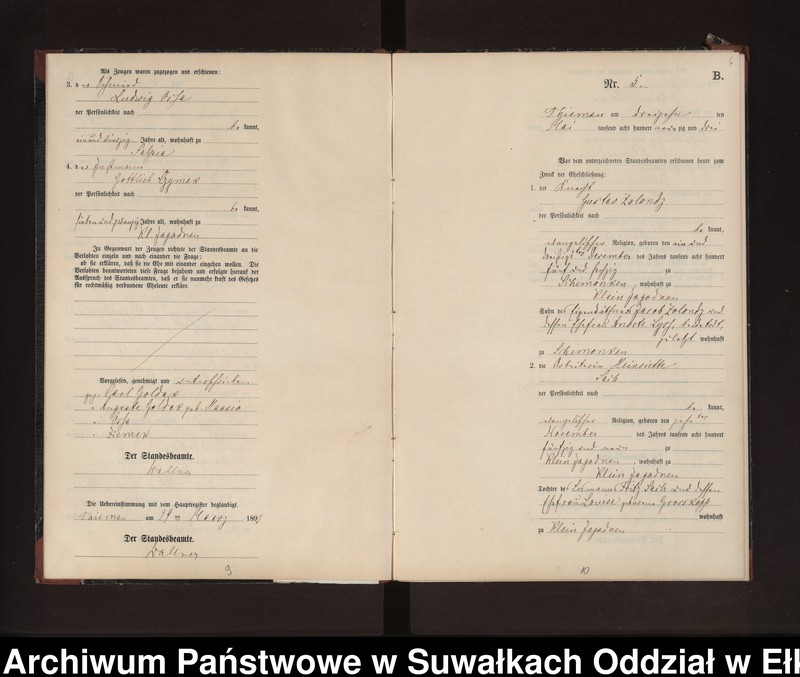 Als Zeugen waren zugezogen und erschienen:
3. der Schmied
Ludwig
der Persönlichkeit nach
be kannt,
Jahre alt, wohnhaft zu
4. der
Gottlieb
der Persönlichkeit nach
be kannt,
sieben und zwanzig Jahre alt, wohnhaft zu
Kl. Jagodnen
In Gegenwart der Zeugen richtete der Standesbeamte an die
Verlobten einzeln und nach einander die Frage:
ob sie erklären, daß sie die Ehe mit einander eingehen wollen. Die
Verlobten beantworteten diese Frage bejahend und erfolgte hierauf der
Ausspruch des Standesbeamten, daß er sie nunmehr kraft des Gesetzes
für rechtmäßig verbundene Eheleute erkläre.
Vorgelesen, genehmigt und unterschrieben
gez. Carl Goldak
" Auguste Goldak geb.
"
"
Der Standesbeamte.
Wallner
Die Uebereinstimmung mit dem Hauptregister beglaubigt.
am 29 ten März 1893
Der Standesbeamte.
Wallner
9
6
B.
Nr. 5.
am dreizehn ten
Mai tausend acht hundert neun zig und drei
Vor dem unterzeichneten Standesbeamten erschienen heute zum
Zweck der Eheschließung:
1. der Knecht
Gustav Zolondz
der Persönlichkeit nach
be kannt,
evangelischer Religion, geboren den ein und
dreißigsten December des Jahres tausend acht hundert
fünf und sechzig zu
Schemonken, wohnhaft zu
Klein Jagodnen
Sohn des Jacob Zolondz und
dessen Ehefrau
zuletzt wohnhaft
zu Schemonken
2. die Arbeiterin Heinriette
Saik
der Persönlichkeit nach
be kannt,
evangelischer Religion, geboren den
November des Jahres tausend acht hundert
fünfzig und neun zu
Klein Jagodnen, wohnhaft zu
Klein Jagodnen
Tochter des Fritz Saik und dessen
Ehefrau Louise geborene
wohnhaft
zu Klein Jagodnen
10
Archiwum Państwowe w Suwałkach Oddział w Ełk